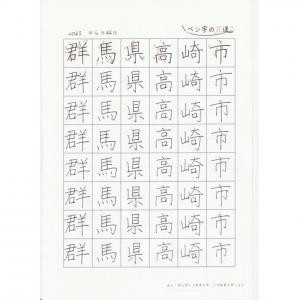 2023 年 6月 22日
ペン字の道
群馬県高崎市
群馬県高崎市
群馬県高崎市
群馬県高崎市
群馬県高崎市
群馬県高崎市
群馬県高崎市
群馬県高崎市